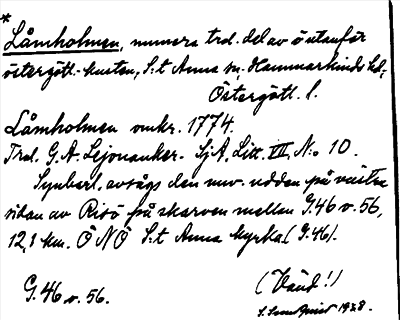 *
Låmholmen, numera trol. del av ö utanför
östergötl.-kusten, S:t Anna sn, Hammarkinds hd,
Östergötl. l.
Låmholmen omkr. 1774.
Trol. G. A. Lejonanker. SjA, Litt. VII, No 10.
Synbarl. avsågs den nuv. udden på västra
sidan av Risö på skarven mellan G. 46 o. 56,
12,1 km. ÖNÖ S:t Anna kyrka (G. 46).
G. 46 o. 56.
(Vänd!)
1938.